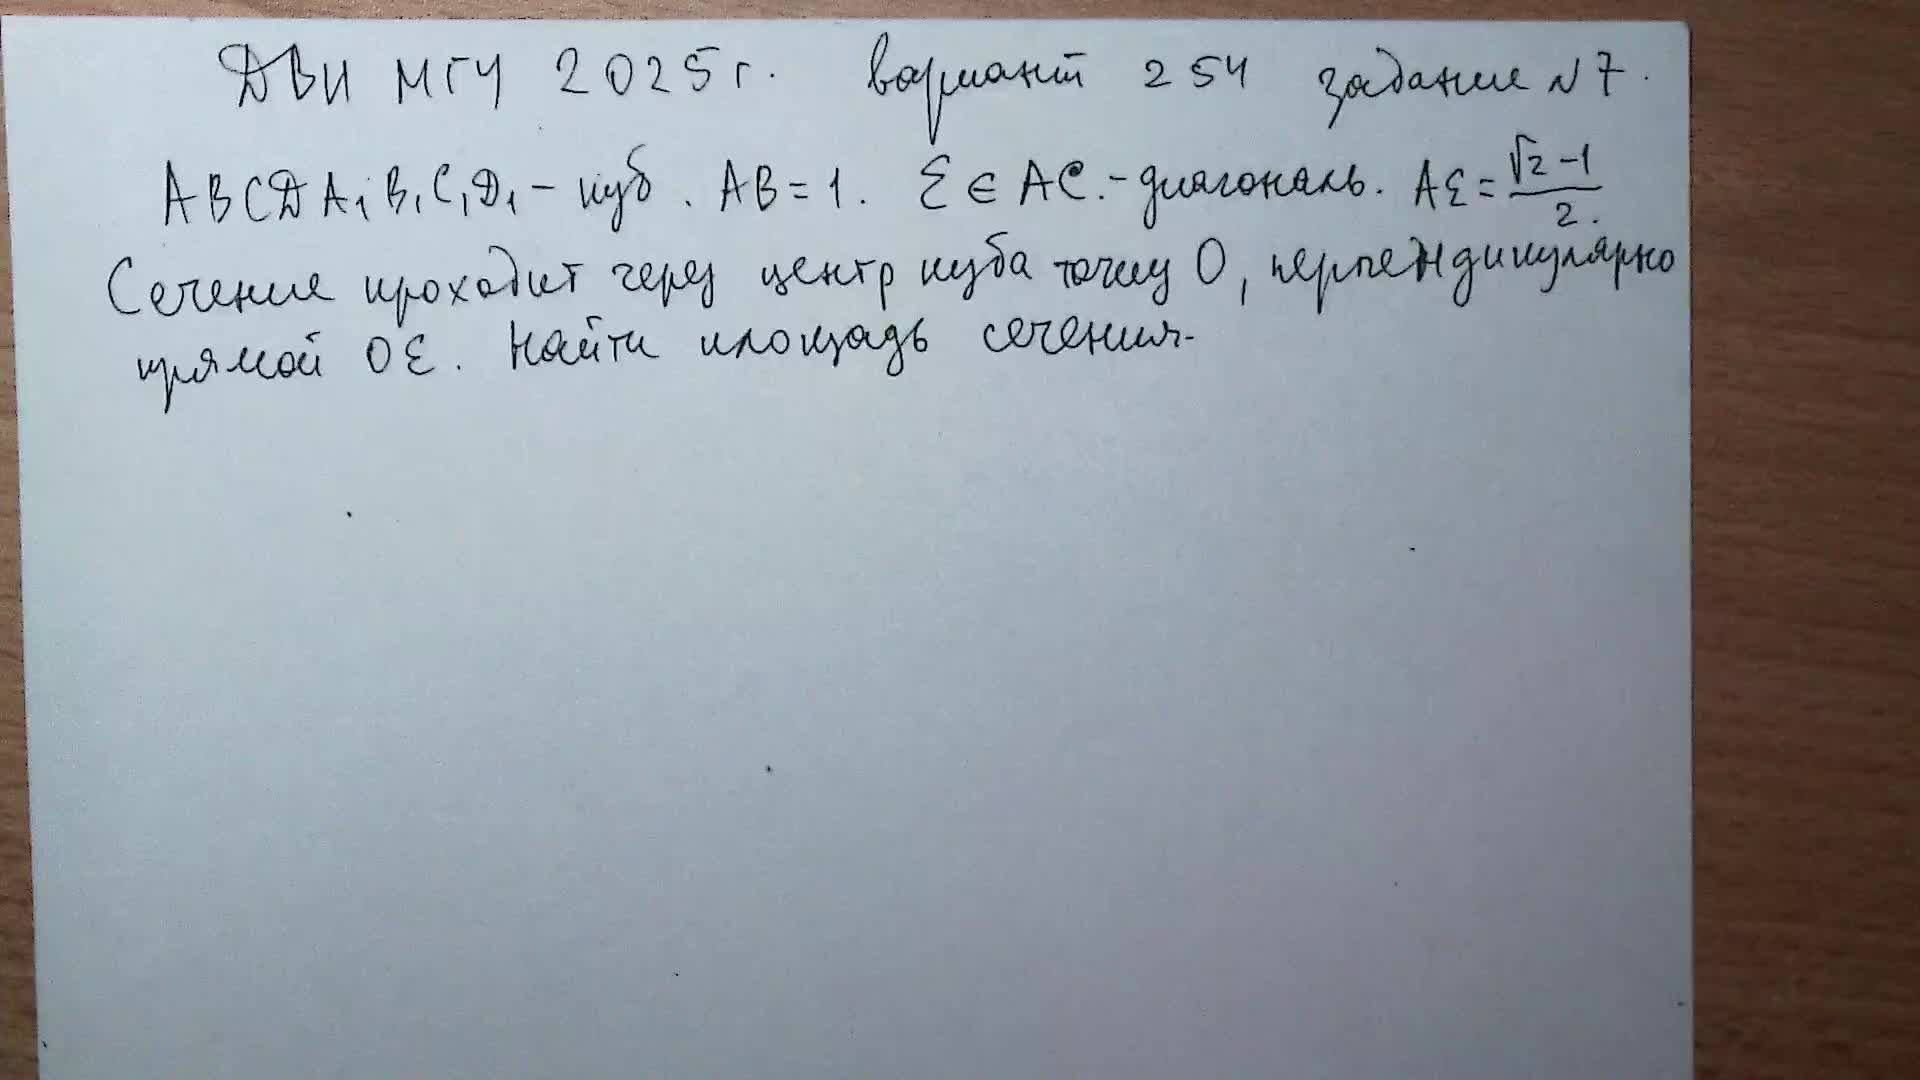 ДВИ МГУ 2025г. вариант 254 задание N7.
ABCDA₁B₁C₁D₁ - куб. AB = 1. E ∈ AC. - диагональ. AE = (√2 - 1)/2.
Сечение проходит через центр куба точку O, перпендикулярно
прямой OE. Найти площадь сечения.